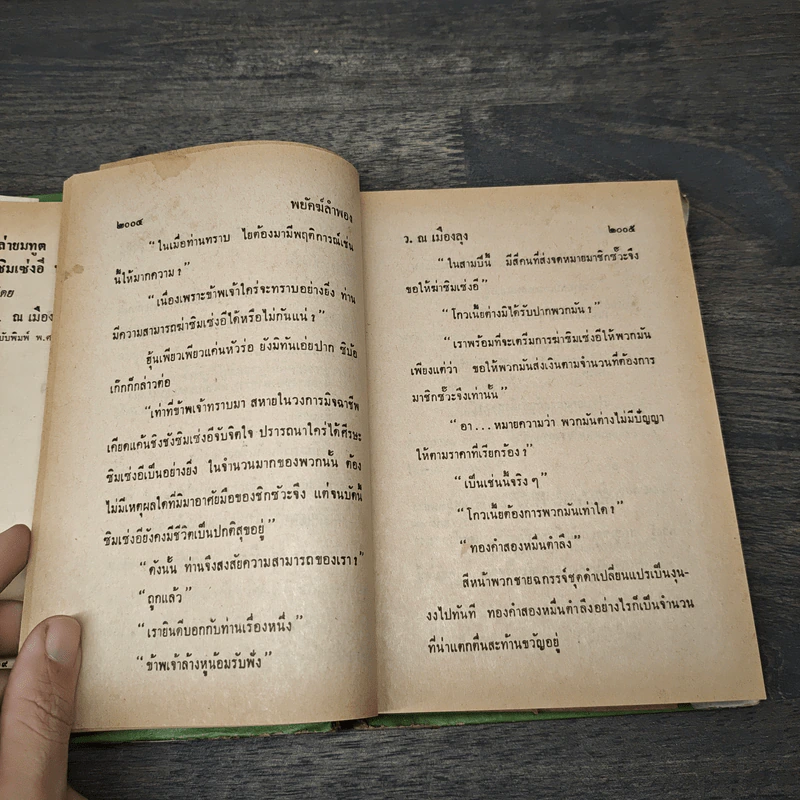 ล่ายมทูต
ซิมเซ่งอี้
ดย
. ณ เมือง
ฉบับพิมพ์ พ.ศ
๒๐๐๔ พยัคฆ์ลำพอง
“ในเมื่อท่านทราบ ไยต้องมามีพฤติการณ์เช่น
นี้ให้มากความ?”
“เนื่องเพราะข้าพเจ้าใคร่จะทราบอย่างยิ่ง ท่าน
มีความสามารถฆ่าซิมเซ่งอี้ได้หรือไม่กันแน่?”
ฮุ้นเพียวเพียวแค่นหัวร่อ ยังมิทันเอ่ยปาก ซิบ้อ
เก๊กก็กล่าวต่อ
“เท่าที่ข้าพเจ้าทราบมา สหายในวงการมิจฉาชีพ
เคียดแค้นชิงชังซิมเซ่งอี้จับจิตใจ ปรารถนาใคร่ได้ศีรษะ
ซิมเซ่งอี้เป็นอย่างยิ่ง ในจำนวนมากของพวกนั้น ต้อง
ไม่มีเหตุผลใดที่มิมาอาศัยมือของชิกซัวะจึง แต่จนบัดนี้
ซิมเซ่งอี้ยังคงมีชีวิตเป็นปกติสุขอยู่”
“ดังนั้น ท่านจึงสงสัยความสามารถของเรา?”
“ถูกแล้ว”
“เรายินดีบอกกับท่านเรื่องหนึ่ง”
“ข้าพเจ้าล้างหูน้อมรับฟัง”
ว. ณ เมืองลุง ๒๐๐๕
“ในสามปีนี้ มีสี่คนที่ส่งจดหมายมาชิกซัวะจึง
ขอให้ฆ่าซิมเซ่งอี้”
“โกวเนี้ยต่างมิได้รับปากพวกมัน?”
“เราพร้อมที่จะเตรีมการฆ่าซิมเซ่งอี้ให้พวกมัน
เพียงแต่ว่า ขอให้พวกมันส่งเงินตามจำนวนที่ต้องการ
มาชิกซัวะจึงเท่านั้น”
“อา...หมายความว่า พวกมันต่างไม่มีปัญญา
ให้ตามราคาที่เรียกร้อง?”
“เป็นเช่นนี้จริง ๆ”
“โกวเนี้ยต้องการพวกมันเท่าใด?”
“ทองคำสองหมื่นตำลึง”
สีหน้าพวกชายฉกรรจ์ชุดดำเปลี่ยนแปรเป็นงุน-
งงไปทันที ทองคำสองหมื่นตำลึงอย่างไรก็เป็นจำนวน
ที่น่าแตกตื่นสะท้านขวัญอยู่